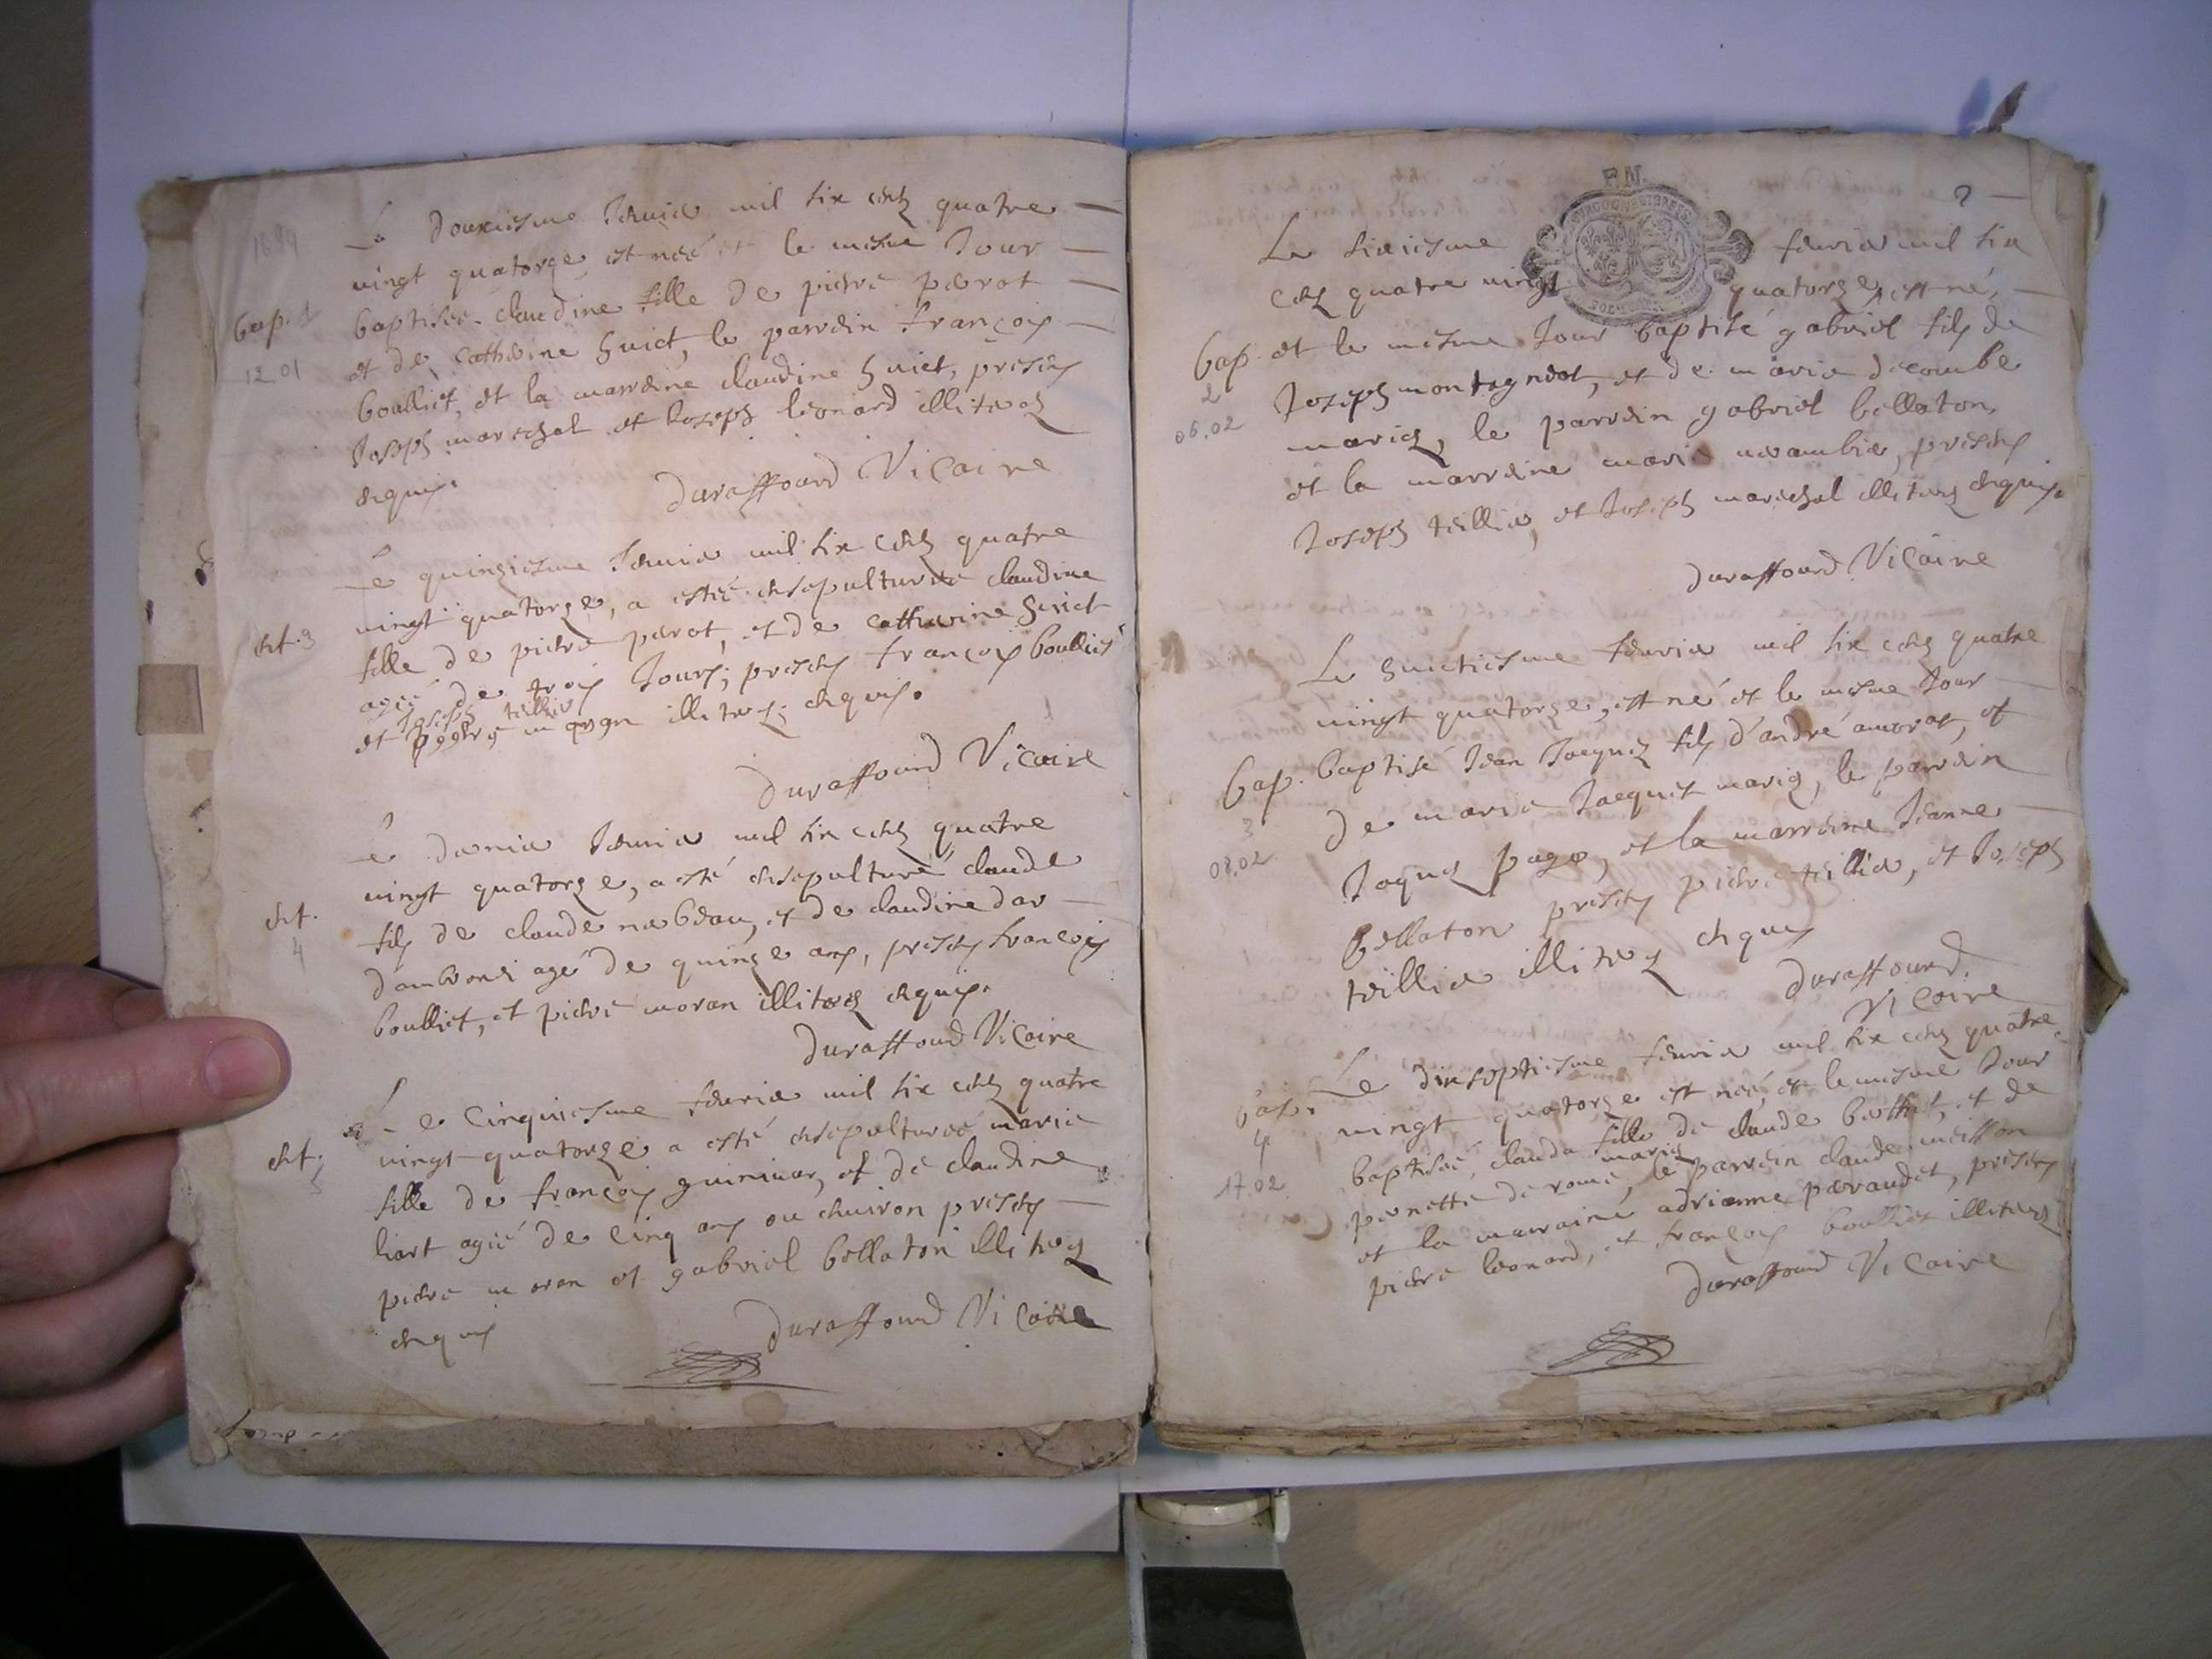 1694
Le douxiesme Janvier mil six cents quatre
vingt quatorze, est neé et le mesme Jour
bap. 1
baptiseé claudine fille de pierre perot
et de catherine huict, le parrein françois
12 01
boulliet, et la marreine claudine huict, presens
Joseph mareschal et Joseph léonard illiteres
enquis.
duraffourd Vicaire
Le quinziesme Janvier mil six cents quatre
vingt quatorze, a esteé ensepultureé claudine
ent. 3
fille de pierre perot, et de catherine huict
ageé de trois Jours; presens françois boulliet
Joseph teillier
et moran illiteres; enquis.
duraffourd Vicaire
Le dernier Janvier mil six cents quatre
vingt quatorze, a esté ensepulturé claude
ent.
4
fils de claude nabeau, et de claudine dar
dambronex agé de quinze ans, presens françois
boulliet, et pierre moran illiteres enquis.
duraffourd Vicaire
Le Cinquiesme febvrier mil six cents quatre
vingt quatorze a esté ensepultureé marie
ent.
5
fille de françois guinivar, et de claudine
liart ageé de Cinq ans ou environ presens
pierre moran et gabriel bellaton illiteres
enquis
duraffourd Vicaire
2
Le sixiesme febvrier mil six
cents quatre vingt quatorze, est né,
bap.
2
et le mesme Jour baptisé gabriel fils de
06.02
Joseph montagneot, et de marie decombe
mariez, le parrein gabriel bellaton,
et la marreine marie presens
Joseph teillier, et Joseph mareschal illiteres enquis.
duraffourd Vicaire
Le huictiesme febvrier mil six cents quatre
vingt quatorze, est né et le mesme Jour
bap.
3
baptisé Jean Jacques fils d'andré amorat, et
08.02
de marie Jacquet mariez, le parrein
Jaques page, et la marreine Jeanne
bellaton presens pierre teillier, et Joseph
teillier illiteres enquis
duraffourd
Vicaire
Le dixseptiesme febvrier mil six cents quatre
bap.
4
vingt quatorze est neé, et le mesme Jour
17.02
baptiseé clauda fille de claude berthet, et de
mariez
pernette de rome, le parrein claude meisson
et la marraine adrianne peraudet, presens
pierre leonard, et françois boulliet illiteres
duraffourd Vicaire